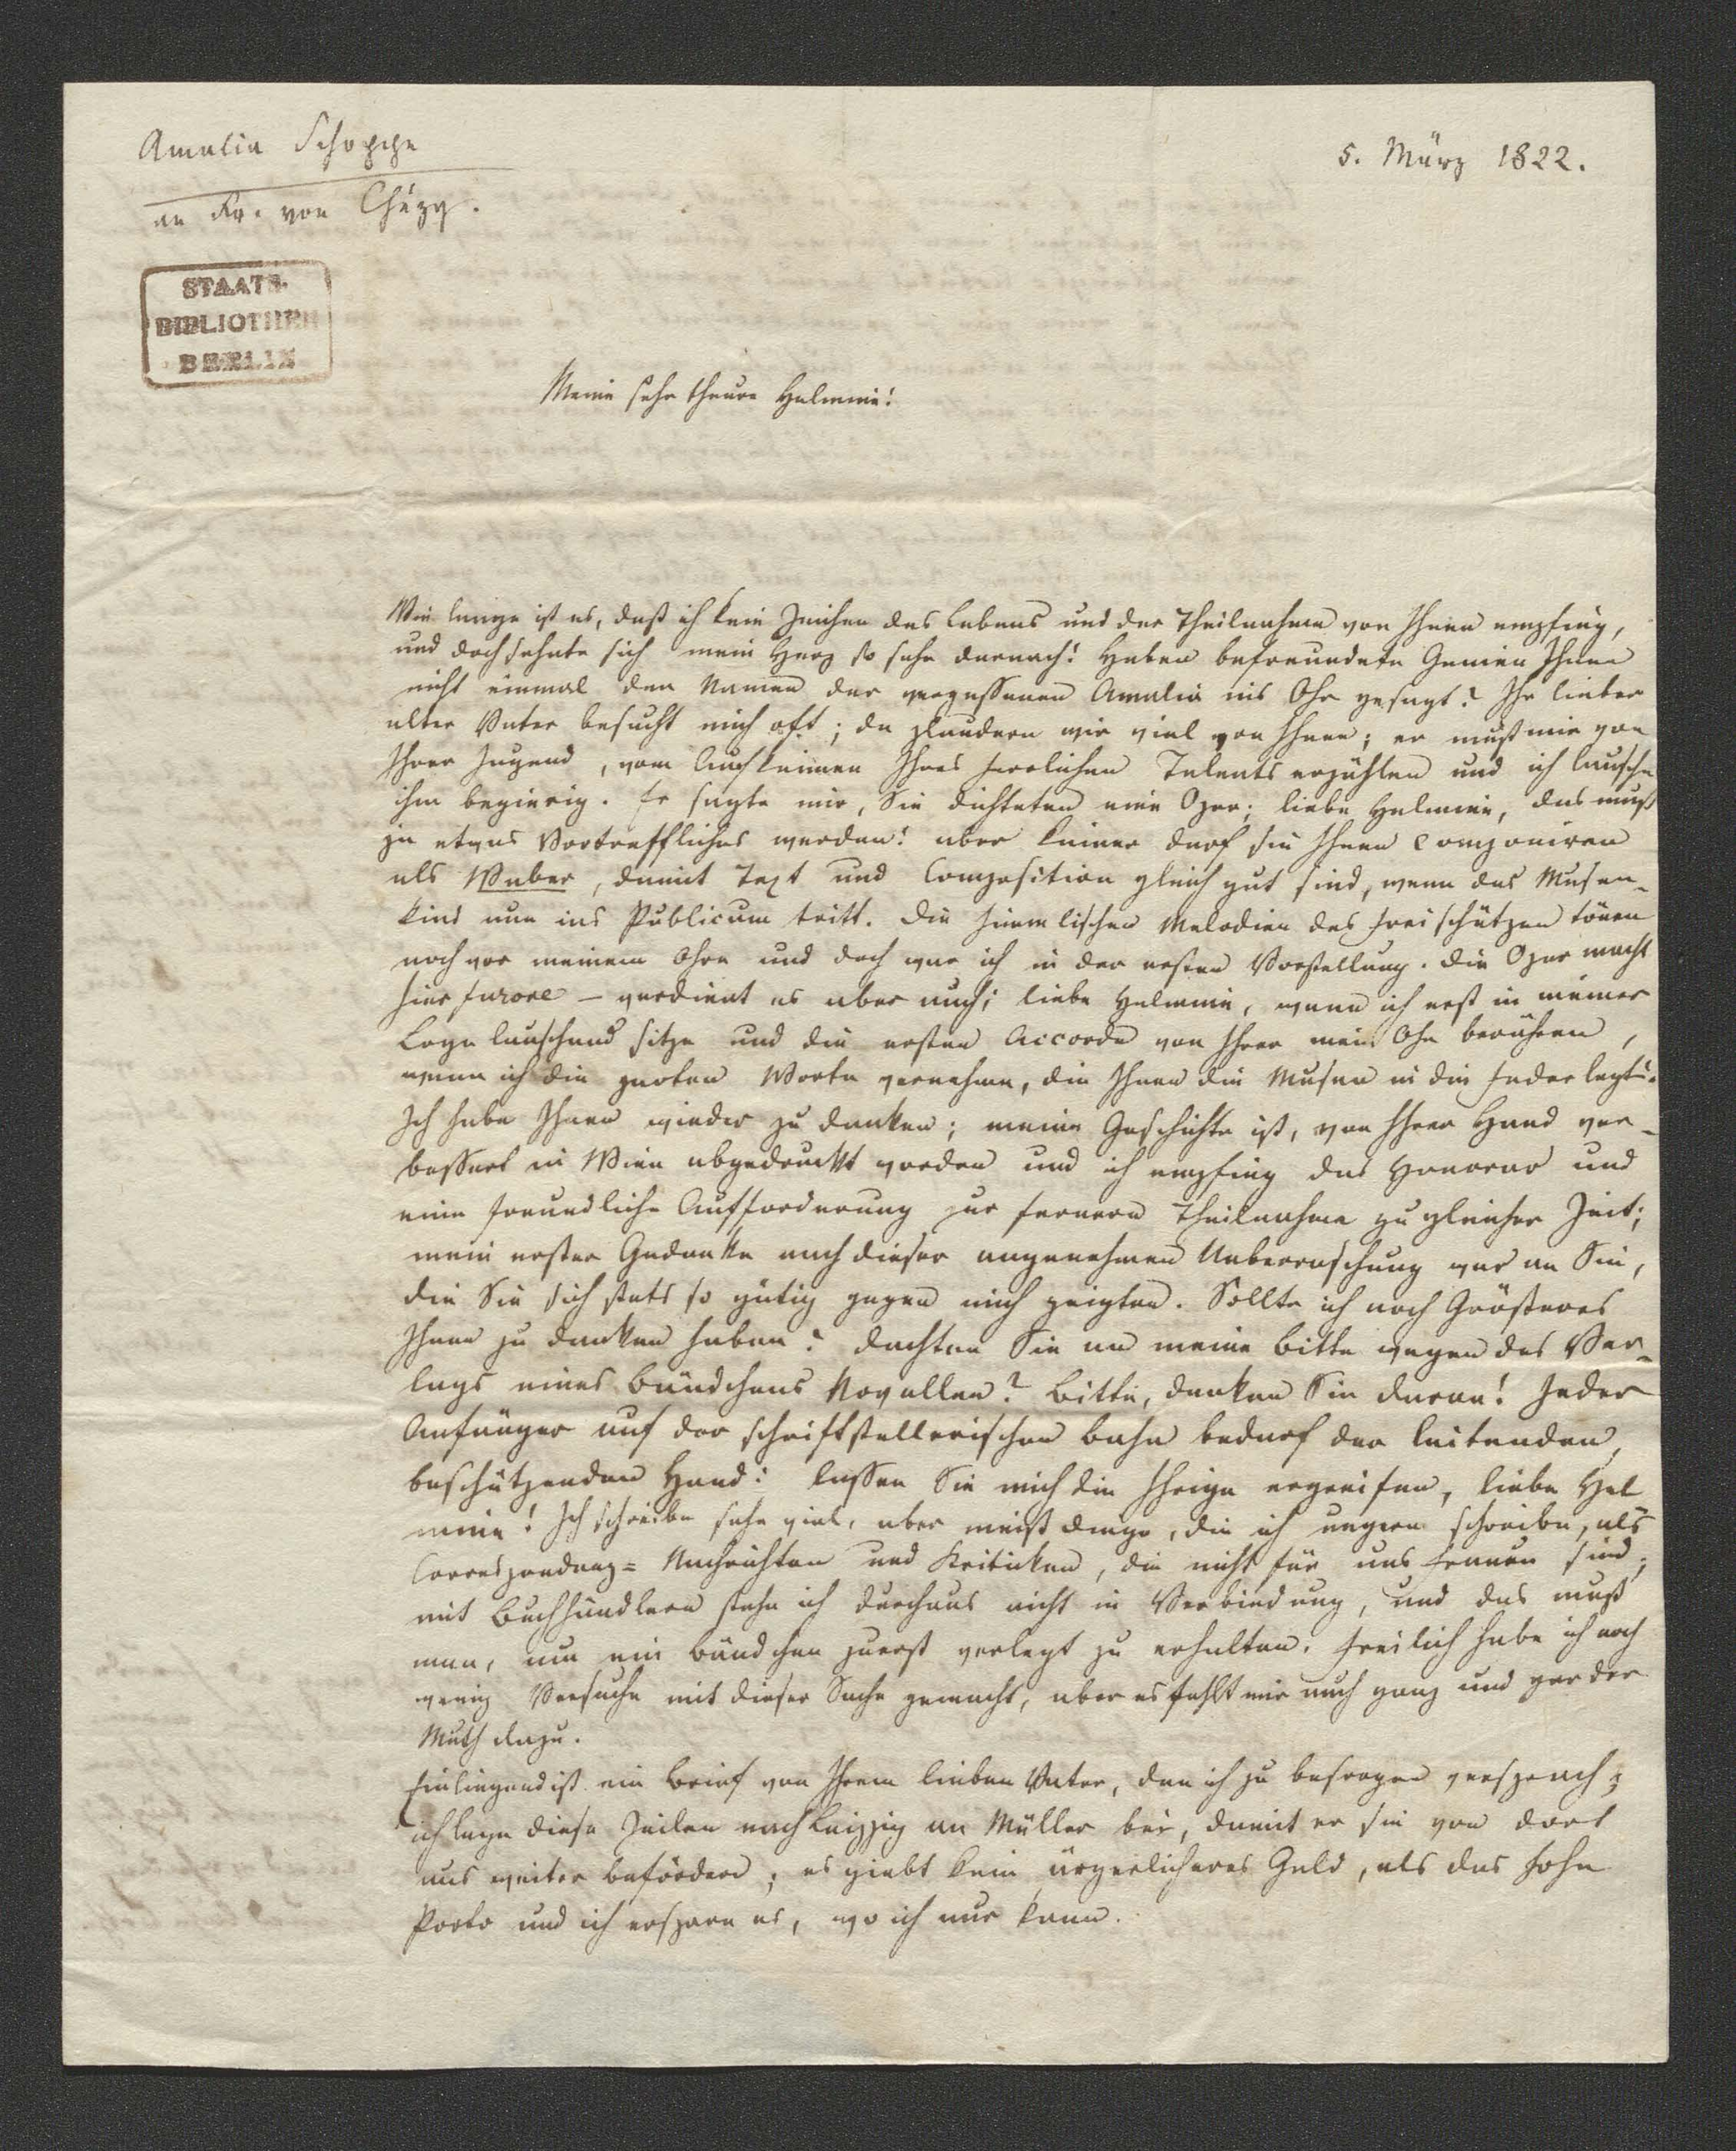 Amalia Schoppe
an Fr. von Chézy.
5. März 1822.
STAATS-
BIBLIOTHEK
BERLIN
Meine sehr theure Helmine!
Wie lange ist es, daß ich kein Zeichen des Lebens und der Theilnahme von Ihnen empfing,
und doch sehnte sich mein Herz so sehr darnach! Haben befreundete Genien Ihnen
nicht einmal den Namen der vergessenen Amalia ins Ohr gesagt? Ihr lieber
alter Vater besucht mich oft; da plaudern wir viel von Ihnen; er muß mir von
Ihrer Jugend, vom Aufkeimen Ihres herrlichen Talents erzählen und ich lausche
ihm begierig. Er sagte mir, Sie dichteten eine Oper; liebe Helmine, das muß
ja etwas Vortreffliches werden! aber keiner darf sie Ihnen componiren
als Weber, damit Text und Composition gleich gut sind, wenn das Musen-
kind nun ins Publicum tritt. Die himmlischen Melodien des Freischützen tönen
noch vor meinem Ohre und doch war ich in der ersten Vorstellung. Die Oper macht
hier furore – verdient es aber auch; liebe Helmine, wenn ich erst in meiner
Loge lauschend sitze und die ersten Accorde von Ihrer mein Ohr berühren,
wenn ich die zarten Worte vernehme, die Ihnen die Musen in die Feder legte.
Ich habe Ihnen wieder zu danken; meine Geschichte ist, von Ihrer Hand ver-
bessert in Wien abgedruckt worden und ich empfing das Honorar und
eine freundliche Aufforderung zur fernern Theilnahme zu gleicher Zeit;
mein erster Gedanke nach dieser angenehmen Ueberraschung war an Sie,
die Sie sich stets so gütig gegen mich zeigten. Sollte ich noch Größeres
Ihnen zu danken haben? dachten Sie an meine Bitte wegen des Ver-
lags eines Bändchens Novellen? Bitte, denken Sie daran! Jeder
Anfänger auf der schriftstellerischen Bahn bedarf der leitenden,
beschützenden Hand: lassen Sie mich die Ihrige ergreifen, liebe Hel
mine! Ich schreibe sehr viel, aber meist Dinge, die ich ungern schreibe, als
Correspondenz-Nachrichten und Kritiken, die nicht für uns Frauen sind;
mit Buchhändlern stehe ich durchaus nicht in Verbindung, und das muß
man, um ein Bändchen zuerst verlegt zu erhalten. Freilich habe ich noch
wenig Versuche mit dieser Sache gemacht, aber es fehlt mir auch ganz und gar der
Muth dazu.
Einliegend ist ein Brief von Ihrem lieben Vater, den ich zu besorgen versprach;
ich lege diese Zeilen nach Leipzig an Müller bei, damit er sie von dort
aus weiter befördere; es giebt kein ärgerlicheres Geld, als das hohe
Porto und ich erspare es, wo ich nur kann.